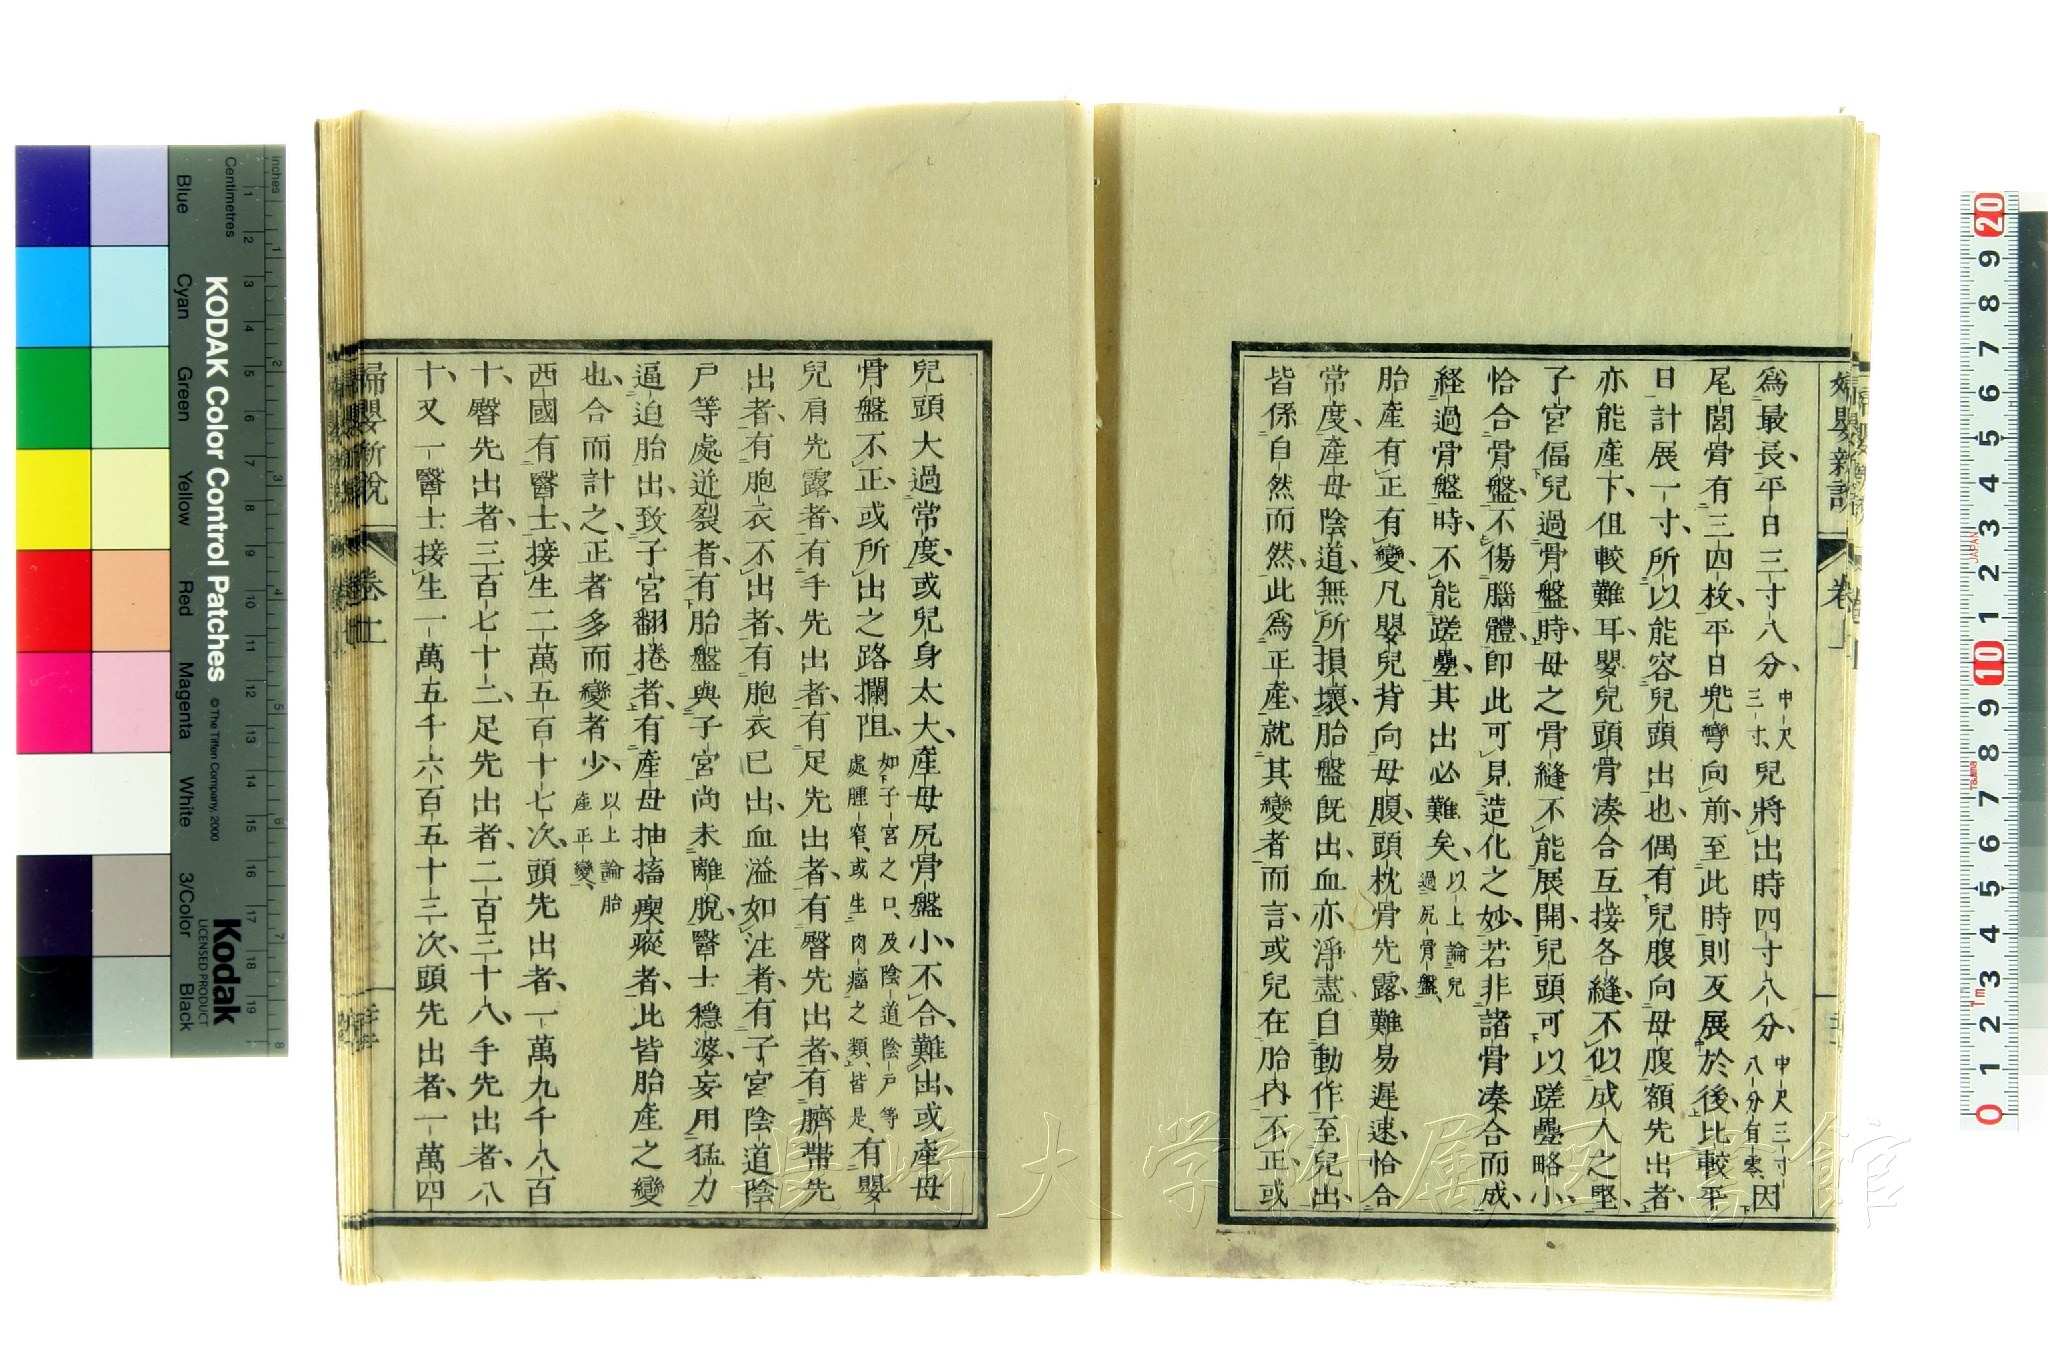 婦嬰新說
卷上
爲最長、平日三寸八分、中尺三寸、兒將出時四寸八分、中尺三寸八分有零、因
尾閭骨有三四枚、平日兜彎向前、至此時則反展於後、比較平
日計展一寸、所以能容兒頭出也、偶有兒腹向母腹額先出者、
亦能產下、但較難耳、嬰兒頭骨湊合互接各縫、不似成人之堅、
子宮偪兒過骨盤時、母之骨縫不能展開、兒頭可以蹉疊略小、
恰合骨盤、不傷腦體、卽此可見造化之妙、若非諸骨湊合而成、
経過骨盤時、不能蹉疊、其出必難矣、以上論兒過尻骨盤、
胎產有正有變、凡嬰兒背向母腹、頭枕骨先露、難易遲速、恰合
常度、產母陰道、無所損壞、胎盤旣出、血亦淨盡、自動作至兒出、
皆係自然而然、此爲正產、就其變者而言、或兒在胎內不正、或
兒頭大過常度、或兒身太大、產母尻骨盤小、不合難出、或產母
骨盤不正、或所出之路攔阻、如子宮之口、及陰道陰戶等處腫窄、或生肉瘤之類、皆是、有嬰
兒肩先露者、有手先出者、有足先出者、有臀先出者、有臍帶先
出者、有胞衣不出者、有胞衣已出、血溢如注者、有子宮陰道陰
戸等處迸裂者、有胎盤與子宮尚未離脫、醫士穩婆、妄用猛力
逼迫胎出、致子宮翻捲者、有產母抽搐瘈瘲者、此皆胎產之變
也、合而計之、正者多而變者少、以上論胎產正變、
西國有醫士、接生二萬五百十七次、頭先出者、一萬九千八百
十、臀先出者、三百七十二、足先出者、二百三十八、手先出者、八
十、又一醫士接生一萬五千六百五十三次、頭先出者、一萬四
婦嬰新說
卷上
KODAK Color Control Patches
© The Tiffen Company, 2000
Kodak
LICENSED PRODUCT
inches
Centimetres
Blue
Cyan
Green
Yellow
Red
Magenta
White
3/Color
Black
長崎大学附属図書館